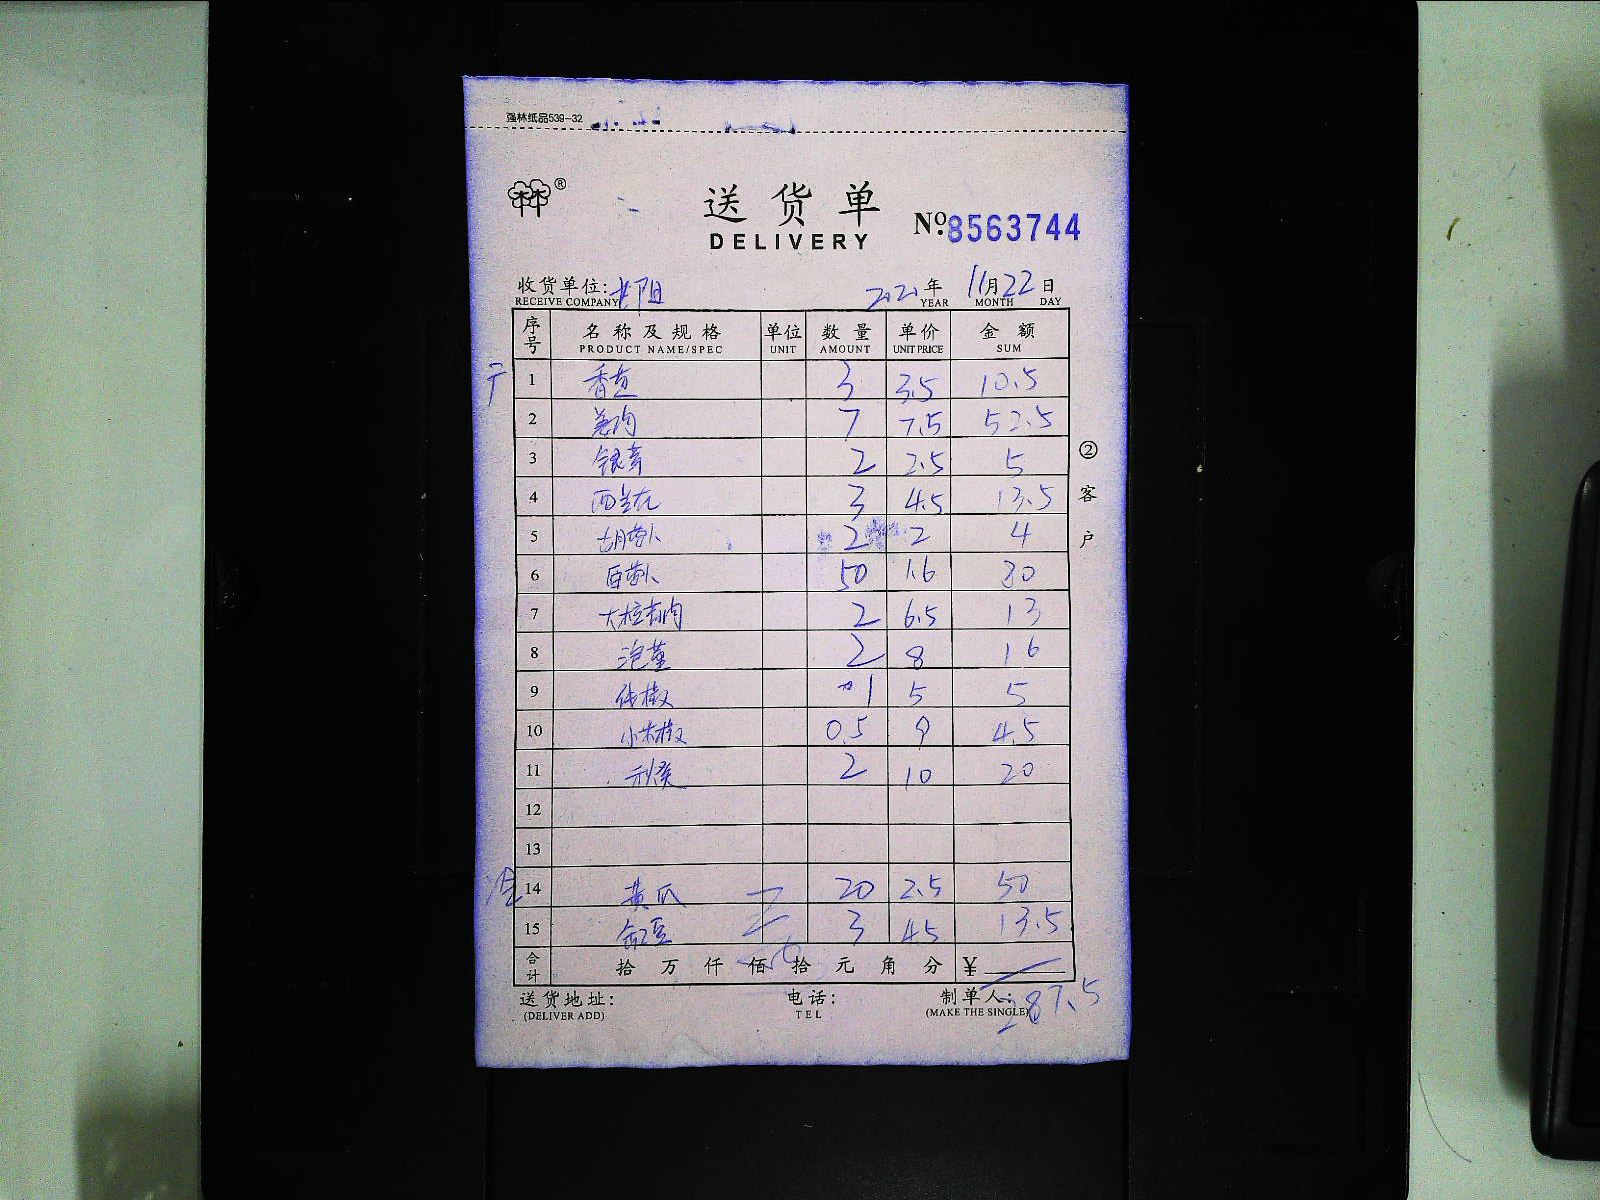 强林纸品539-32
®
送货单
DELIVERY
No. 8563744
收货单位:
RECEIVE COMPANY
2021年 11月22日
YEAR MONTH DAY
序号 名称及规格 单位 数量 单价 金额
PRODUCT NAME/SPEC UNIT AMOUNT UNIT PRICE SUM
1 3 3.5 10.5
2 7 7.5 52.5
3 2 2.5 5
4 西兰花 3 4.5 13.5
5 胡萝卜 2 2 4
6 白萝卜 50 1.6 80
7 2 6.5 13
8 泡姜 2 8 16
9 线椒 1 5 5
10 小米椒 0.5 9 4.5
11 2 10 20
12
13
14 黄瓜 20 2.5 50
15 缸豆 3 4.5 13.5
合计 拾万仟佰拾元角分 ¥
287.5
②客户
送货地址: 电话: 制单人:
(DELIVER ADD) TEL (MAKE THE SINGLE)